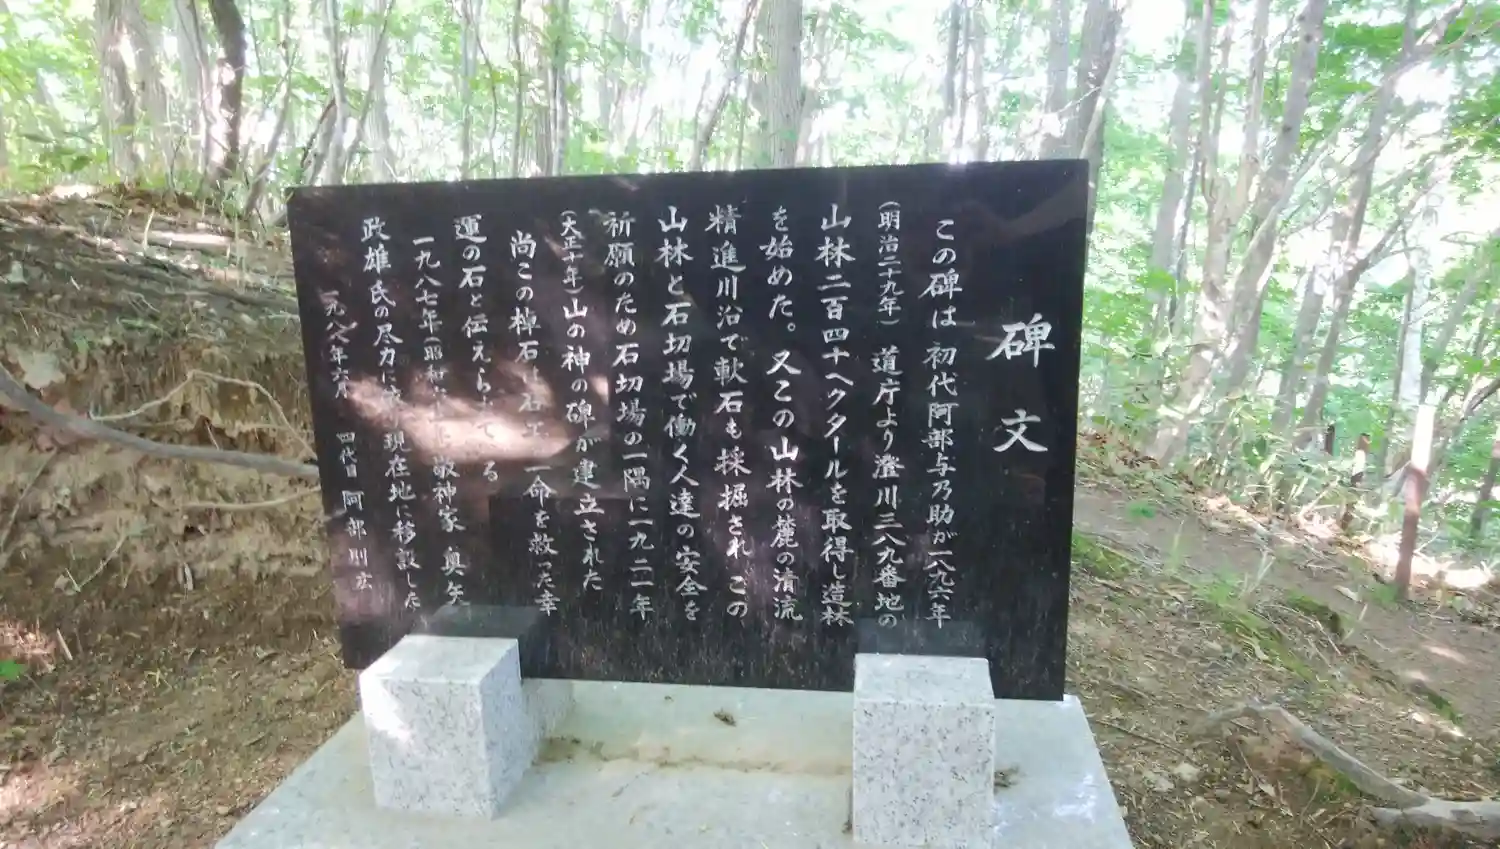 碑文
この碑は初代阿部与乃助が一八九六年
(明治二十九年)道庁より澄川三八九番地の
山林二百四十ヘクタールを取得し造林
を始めた。又この山林の麓の清流
精進川沿で軟石も採掘されこの
山林と石切場で働く人達の安全を
祈願のため石切場の一隅に一九二一年
(大正十年)山の神の碑が建立された
尚この棹石は石工 一命を救った幸
運の石と伝えられて る
一九八七年(昭和 敬神家 奥矢
政雄氏の尽力に 現在地に移設した
一九八八年六月 四代目 阿部 則